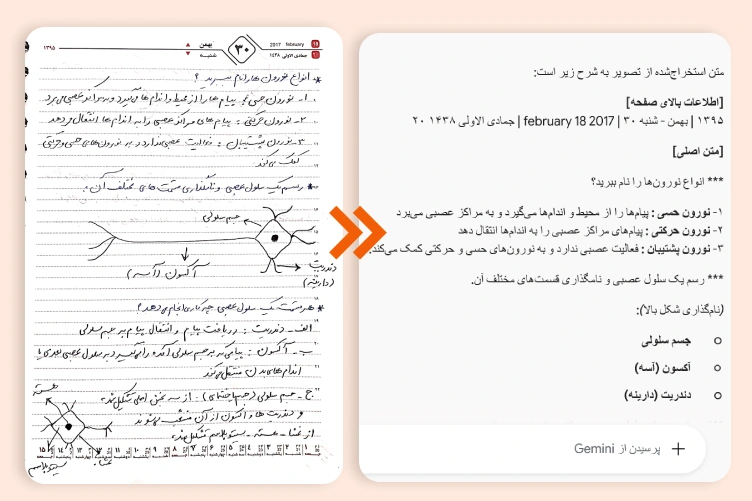 ۱۳۹۵
بهمن
شنبه
۳۰
2017 february 18
جمادی الاولی ۱۴۳۸ ۲۰
* انواع نورون ها را نام ببرید ؟
۱- نورون حسی : پیام ها را از محیط و اندام ها می‌گیرد و به مراکز عصبی می‌برد
۲- نورون حرکتی : پیام های مراکز عصبی را به اندام ها انتقال می‌دهد
۳- نورون پشتیبان : فعالیت عصبی ندارد و به نورون های حسی و حرکتی
کمک می‌کند
* رسم یک سلول عصبی و نامگذاری قسمت های مختلف آن.
جسم سلولی
آکسون (آسه)
دندریت
(دارینه)
* هر قسمت یک سلول عصبی چه کاری انجام می‌دهد؟
الف- دندریت : دریافت پیام و انتقال پیام به جسم سلولی
ب- آکسون : پیامی که بر جسم سلولی آمده را می‌گیرد و به سلول عصبی بعدی یا
اندام های بدن منتقل می‌کند
ج- جسم سلولی : از سه بخش اصلی تشکیل شده
و دندریت ها و آکسون از آن منشعب می‌شوند
از غشا - هسته - سیتوپلاسم تشکیل شده
هسته
غشا
سیتوپلاسم
متن استخراج‌شده از تصویر به شرح زیر است:
[اطلاعات بالای صفحه]
۱۳۹۵ | بهمن - شنبه ۳۰ | 2017 february 18 | جمادی الاولی ۱۴۳۸ ۲۰
[متن اصلی]
*** انواع نورون‌ها را نام ببرید؟
۱- نورون حسی : پیام‌ها را از محیط و اندام‌ها می‌گیرد و به مراکز عصبی می‌برد
۲- نورون حرکتی : پیام‌های مراکز عصبی را به اندام‌ها انتقال دهد
۳- نورون پشتیبان : فعالیت عصبی ندارد و به نورون‌های حسی و حرکتی کمک می‌کند.
*** رسم یک سلول عصبی و نامگذاری قسمت‌های مختلف آن.
(نام‌گذاری شکل بالا):
جسم سلولی
آکسون (آسه)
دندریت (دارینه)
پرسیدن از Gemini